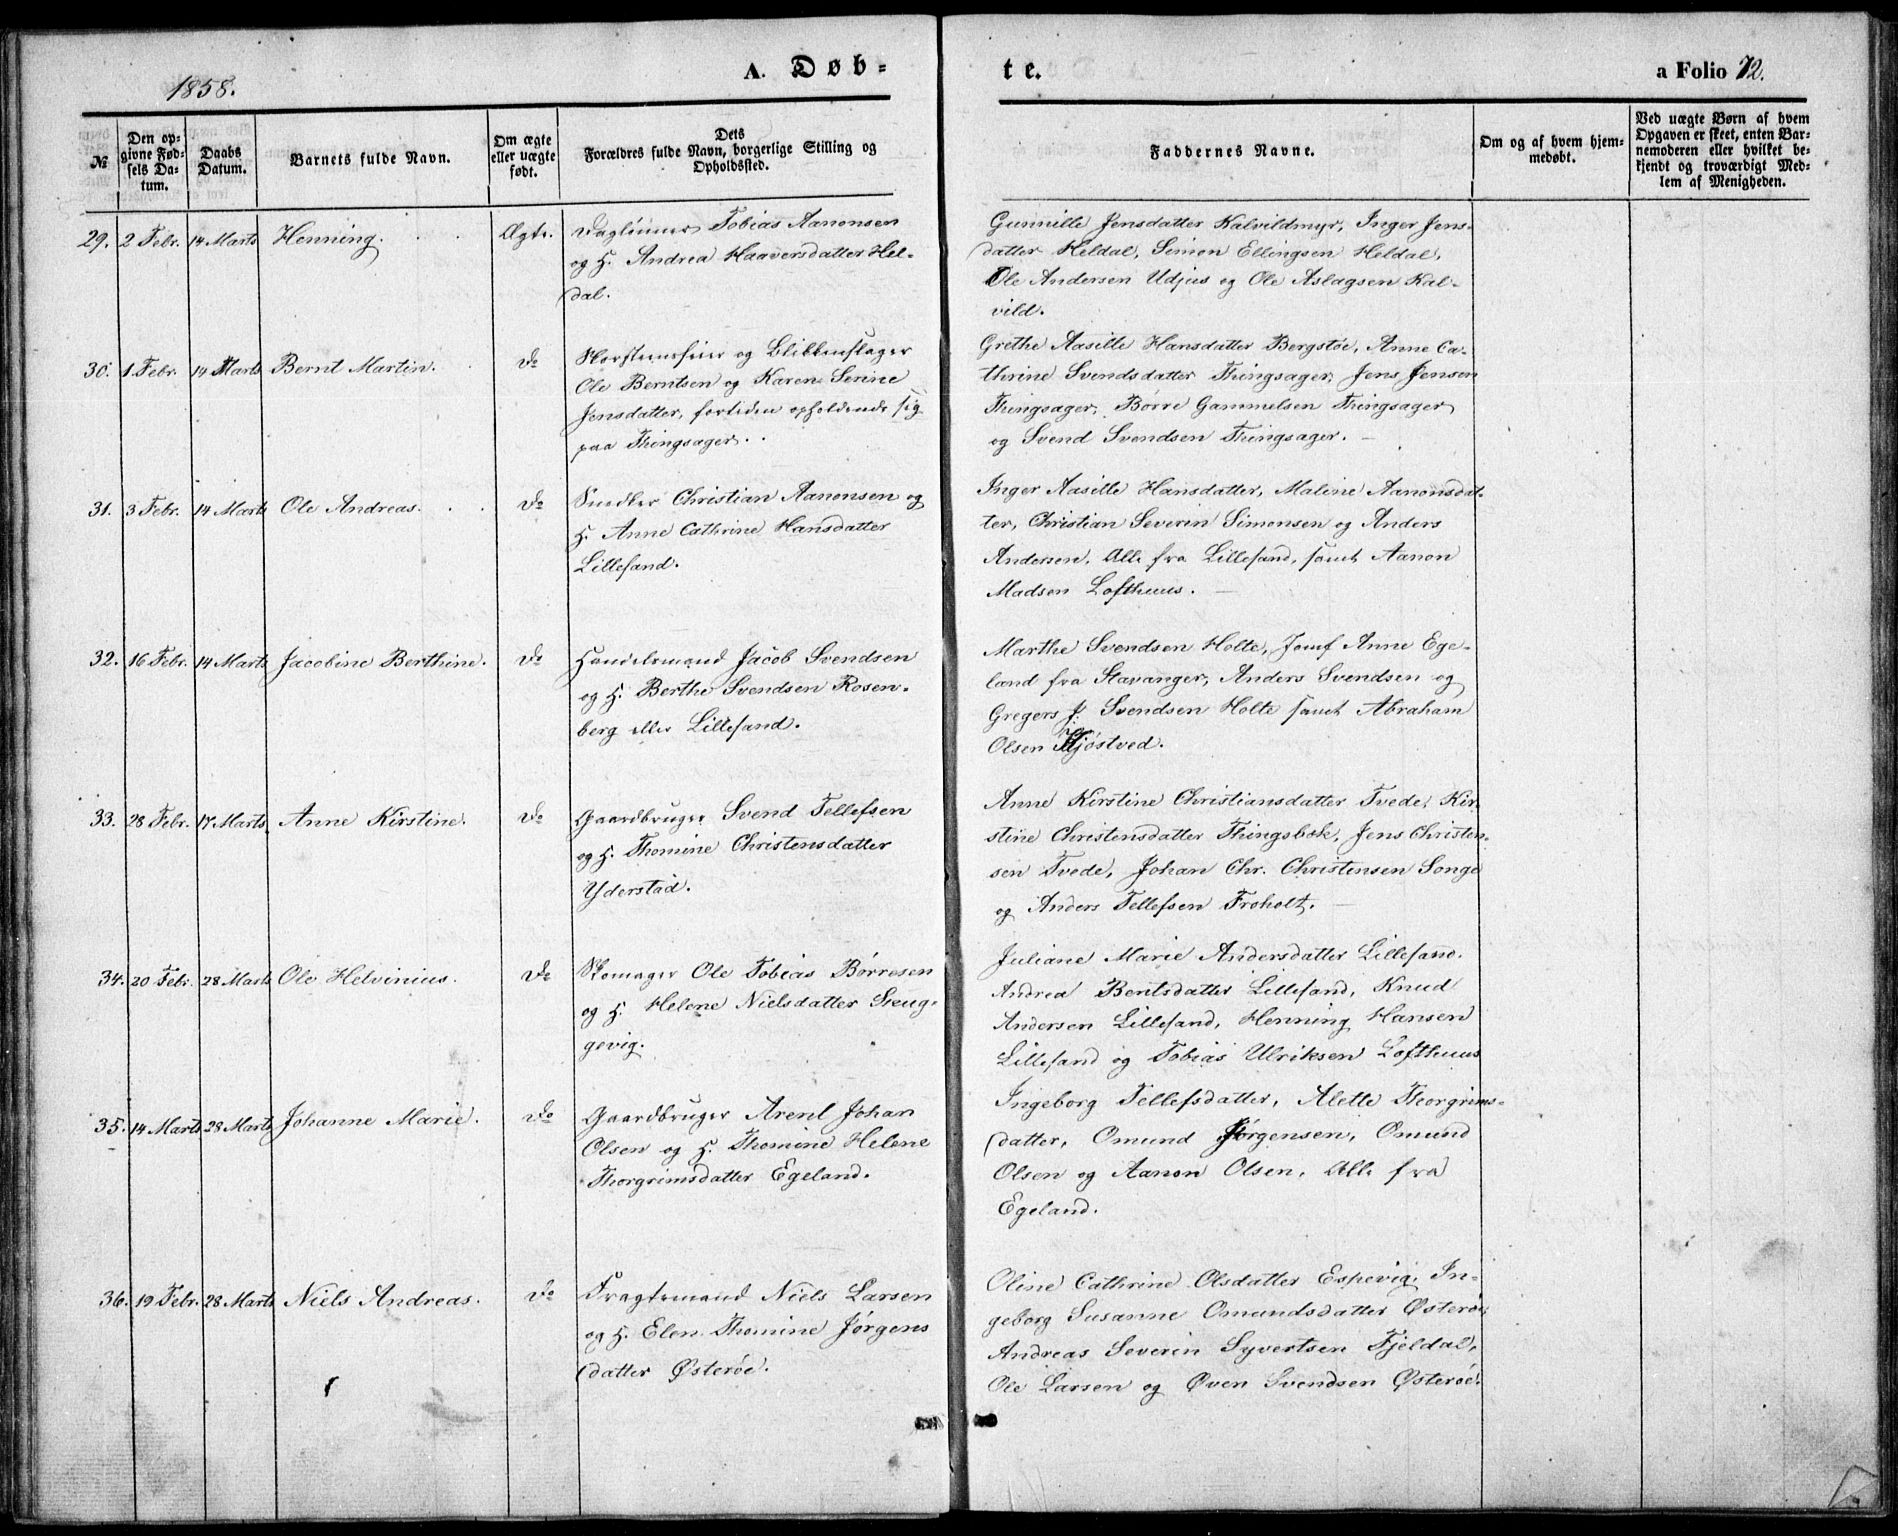 1858.
A. Døb-
te.
a Folio 72.
№
Den op-
givne Fød-
sels Da-
tum.
Daabs
Datum.
Barnets fulde Navn.
Om ægte
eller uægte
født.
Dets
Forældres fulde Navn, borgerlige Stilling og
Opholdssted.
Faddernes Navne.
Om og af hvem hjem-
medøbt.
Ved uægte Børn af hvem
Opgaven er skeet, enten Bar-
nemoderen eller hvilket be-
kjendt og troværdigt Med-
lem af Menigheden.
29. 2 Febr. 14 Marts Henning. Ægte. Daglønner Tobias Aanonsen
og H. Andrea Haaversdatter Hel-
dal.
Gunnille Jensdatter Kalvildmyr, Inger Jens-
datter Heldal, Simon Ellingsen Heldal,
Ole Andersen Udjus og Ole Aslagsen Kal-
vild.
30. 1 Febr. 14 Marts Bernt Martin. Do Skorsteensfeier og Blikkenslager
Ole Berntsen og Karen Serine
Jensdatter, fortiden opholdende sig
paa Thingsager.
Grethe Aasille Hansdatter Bergstøe, Anne Ca-
thrine Svendsdatter Thingsager, Jens Jensen
Thingsager, Børre Gammelsen Thingsager
og Svend Svendsen Thingsager.
31. 3 Febr. 14 Marts Ole Andreas. Do Snedker Christian Aanonsen og
H. Anne Cathrine Hansdatter
Lillesand.
Inger Aasille Hansdatter, Maline Aanonsdat-
ter, Christian Severin Simonsen og Anders
Andersen, Alle fra Lillesand, samt Aanon
Madsen Lofthuus.
32. 16 Febr. 14 Marts Jacobine Berthine. Do Handelsmand Jacob Svendsen
og H. Berthe Svendsen Rosen-
berg eller Lillesand.
Marthe Svendsen Holte, Jomf Anne Ege-
land fra Stavanger, Anders Svendsen og
Gregers J. Svendsen Holte samt Abraham
Olsen Kjøstved.
33. 28 Febr. 17 Marts Anne Kirstine. Do Gaardbruger Svend Tellefsen
og H. Thomine Christensdatter
Yderstad.
Anne Kirstine Christiansdatter Tvede, Kir-
stine Christensdatter Thingsbek, Jens Christen-
sen Tvede, Johan Chr. Christensen Songe
og Anders Tellefsen Froholt.
34. 20 Febr. 28 Marts Ole Helvinius. Do Skomager Ole Tobias Børresen
og H. Helene Nielsdatter Skeug-
gevig.
Juliane Marie Andersdatter Lillesand.
Andrea Bentsdatter Lillesand, Knud
Andersen Lillesand, Henning Hansen
Lillesand og Tobias Ulriksen Lofthuus
35. 14 Marts 28 Marts Johanne Marie. Do Gaardbruger Arent Johan
Olsen og H. Thomine Helene
Thorgrimsdatter Egeland.
Ingeborg Tellefsdatter, Alette Thorgrims-
datter, Omund Jørgensen, Omund
Olsen og Aanon Olsen, Alle fra
Egeland.
36. 19 Febr. 28 Marts Niels Andreas. Do Fragtemand Niels Larsen
og H. Elen Thomine Jørgens
datter Østerøe.
Oline Cathrine Olsdatter Espevig, In-
geborg Susanne Omundsdatter Østerøe,
Andreas Severin Syvertsen Fjeldal,
Ole Larsen og Øven Svendsen Østerøe.